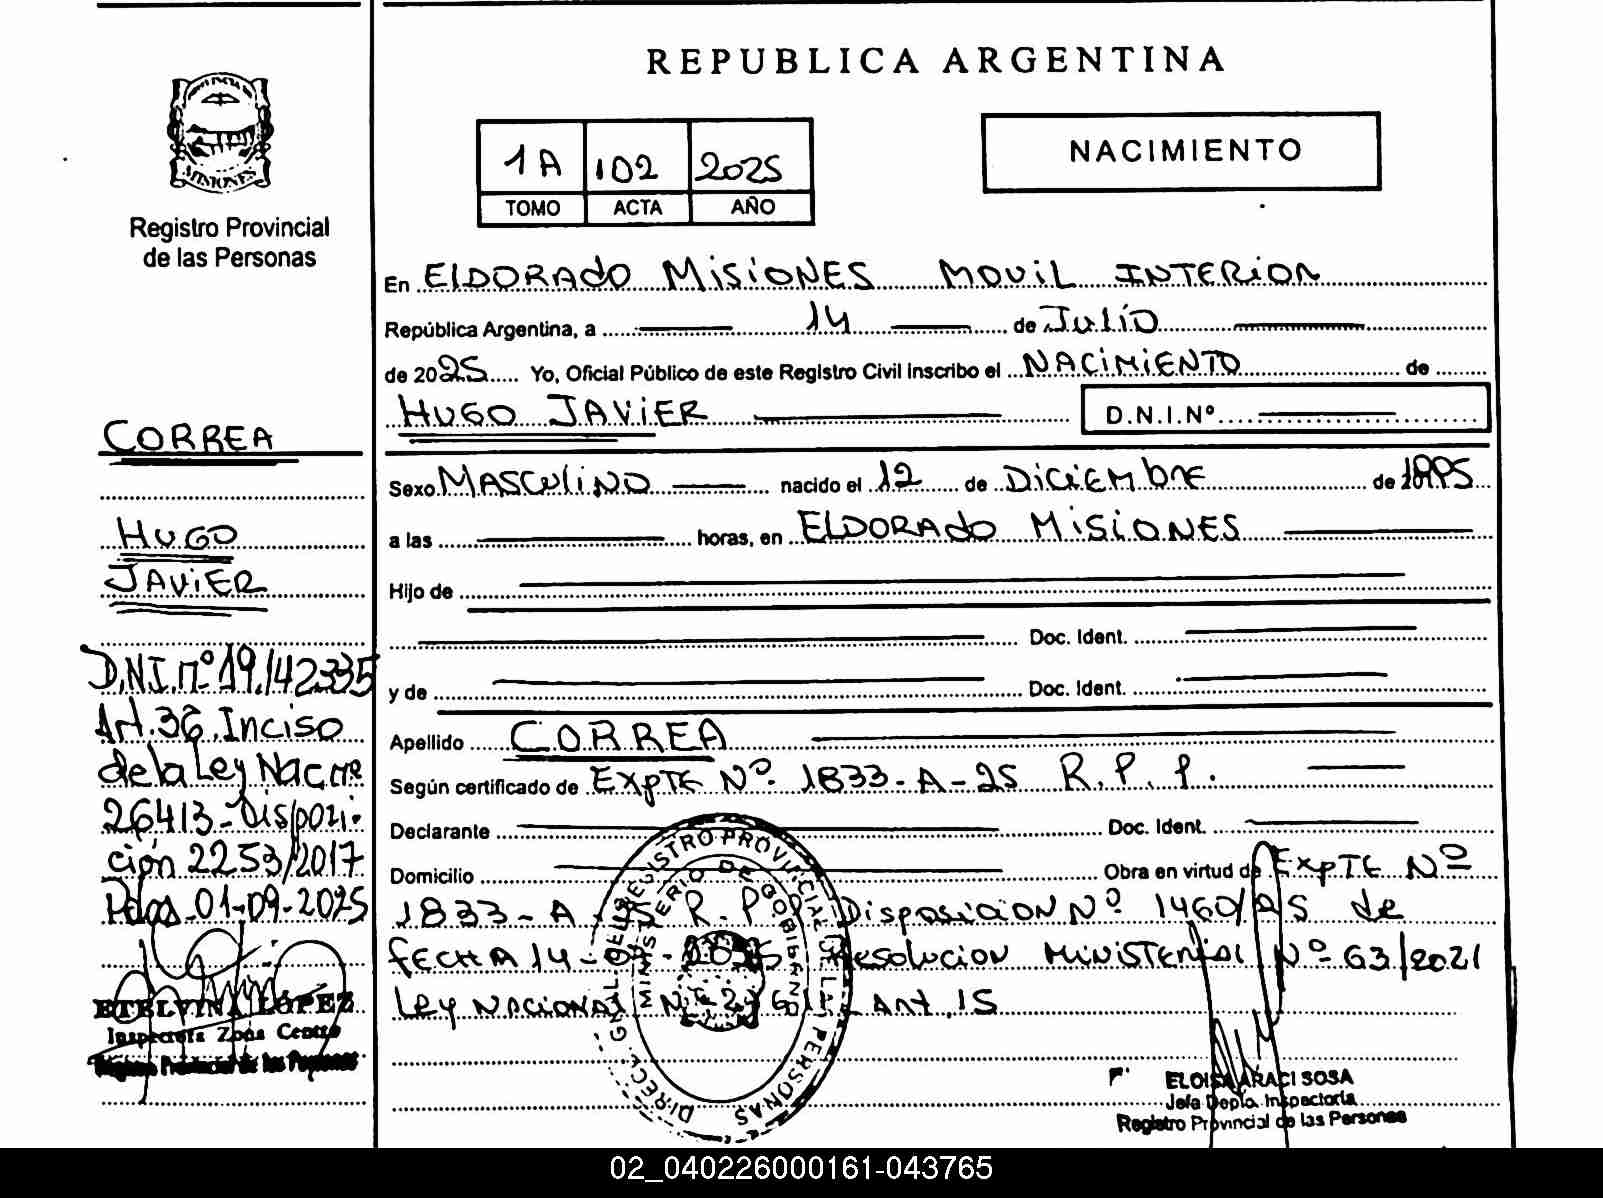 REPUBLICA ARGENTINA
MISIONES
Registro Provincial
de las Personas
1A 102 2025
TOMO ACTA AÑO
NACIMIENTO
En ELDORADO MISIONES MOVIL INTERIOR
República Argentina, a 14 de Julio
de 2025 Yo, Oficial Público de este Registro Civil inscribo el NACIMIENTO de
HUGO JAVIER D.N.I.Nº
Sexo MASCULINO nacido el 12 de DICIEMBRE de 1995
a las horas, en ELDORADO MISIONES
Hijo de
Doc. Ident.
y de Doc. Ident.
Apellido CORREA
Según certificado de EXPTE Nº 1833-A-25 R.P.P.
Declarante Doc. Ident.
Domicilio Obra en virtud de EXPTE Nº
1833-A R.P. Disposición Nº 1460/25 de
FECHA 14- Resolucion Ministerial Nº 63/2021
Ley Nacional Art. 15
CORREA
HUGO
JAVIER
D.N.I. nº 19.142335
Art. 36 Inciso
de la Ley Nac nº
26413-Disposi-
ción 2253/2017
Pdas 01-09-2025
ETELVINA LÓPEZ
Inspectora Zona Centro
Registro Provincial de las Personas
DIREC. GRAL. DEL REGISTRO PROVINCIAL DE LAS PERSONAS
MINISTERIO DE GOBIERNO
ELOISA ARACI SOSA
Jefa Depto. Inspectoría
Registro Provincial de las Personas
02_040226000161-043765